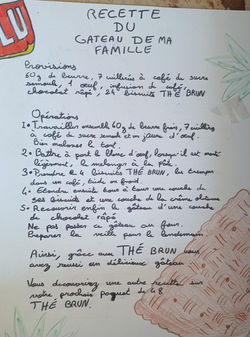 LU
RECETTE
DU
GATEAU DE MA
FAMILLE
Provisions
60g de beurre, 7 cuillerées à café de sucre
semoule, 1 oeuf, infusion de café,
chocolat râpé, 24 biscuits THÉ BRUN
Opérations
1. Travailler ensemble 60g de beurre frais, 7 cuillerées
à café de sucre semoule et un jaune d'oeuf.
Bien malaxer le tout.
2. Battre à part le blanc d'oeuf, lorsqu'il est monté
légèrement, le mélanger à la pâte.
3. Prendre les biscuits THÉ BRUN, les tremper
dans un café, tiède ou froid.
4. Etendre ensuite tour à tour une couche de
ces biscuits et une couche de la crème obtenue
5. Recouvrir enfin le gâteau d'une couche
de chocolat râpé
Ne pas passer ce gâteau au four.
Préparer la veille pour le lendemain.
Ainsi, grâce aux THÉ BRUN vous
avez réussi un délicieux gâteau
Vous découvrirez une autre recette sur
votre prochain paquet de 48
THÉ BRUN.